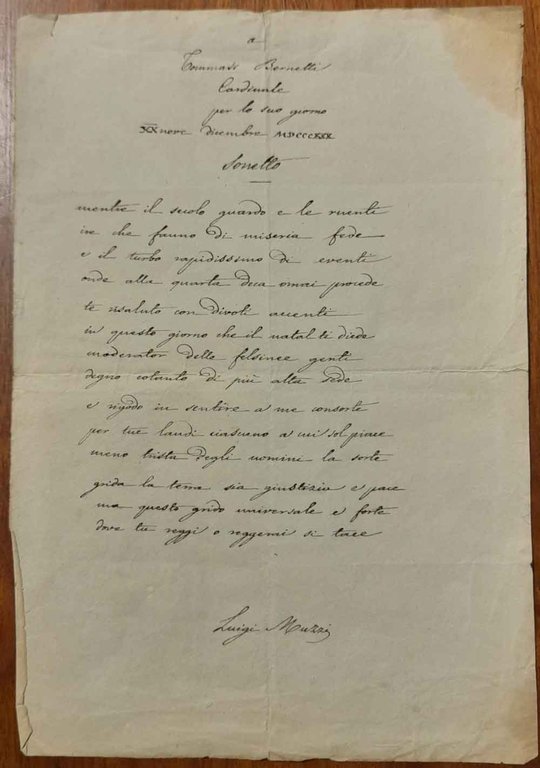 a
Tommaso Bernetti
Cardinale
per lo suo giorno
XXnove dicembre MDCCCXXX
Sonetto
mentre il secolo guardo e le ruenti
ire che fanno di miseria fede
e il turbo rapidissimo di eventi
onde alla quarta deca omai procede
te risaluto con divoti accenti
in questo giorno che il natal ti diede
moderator delle felsinee genti
degno cotanto di più alta sede
e m'odo in sentire a me consorte
per tue laudi ciascuno a cui sol piace
meno trista degli uomini la sorte
grida la terra sia giustizia e pace
ma questo grido universale e forte
dove tu reggi o reggerai si tace
Luigi Muzzi